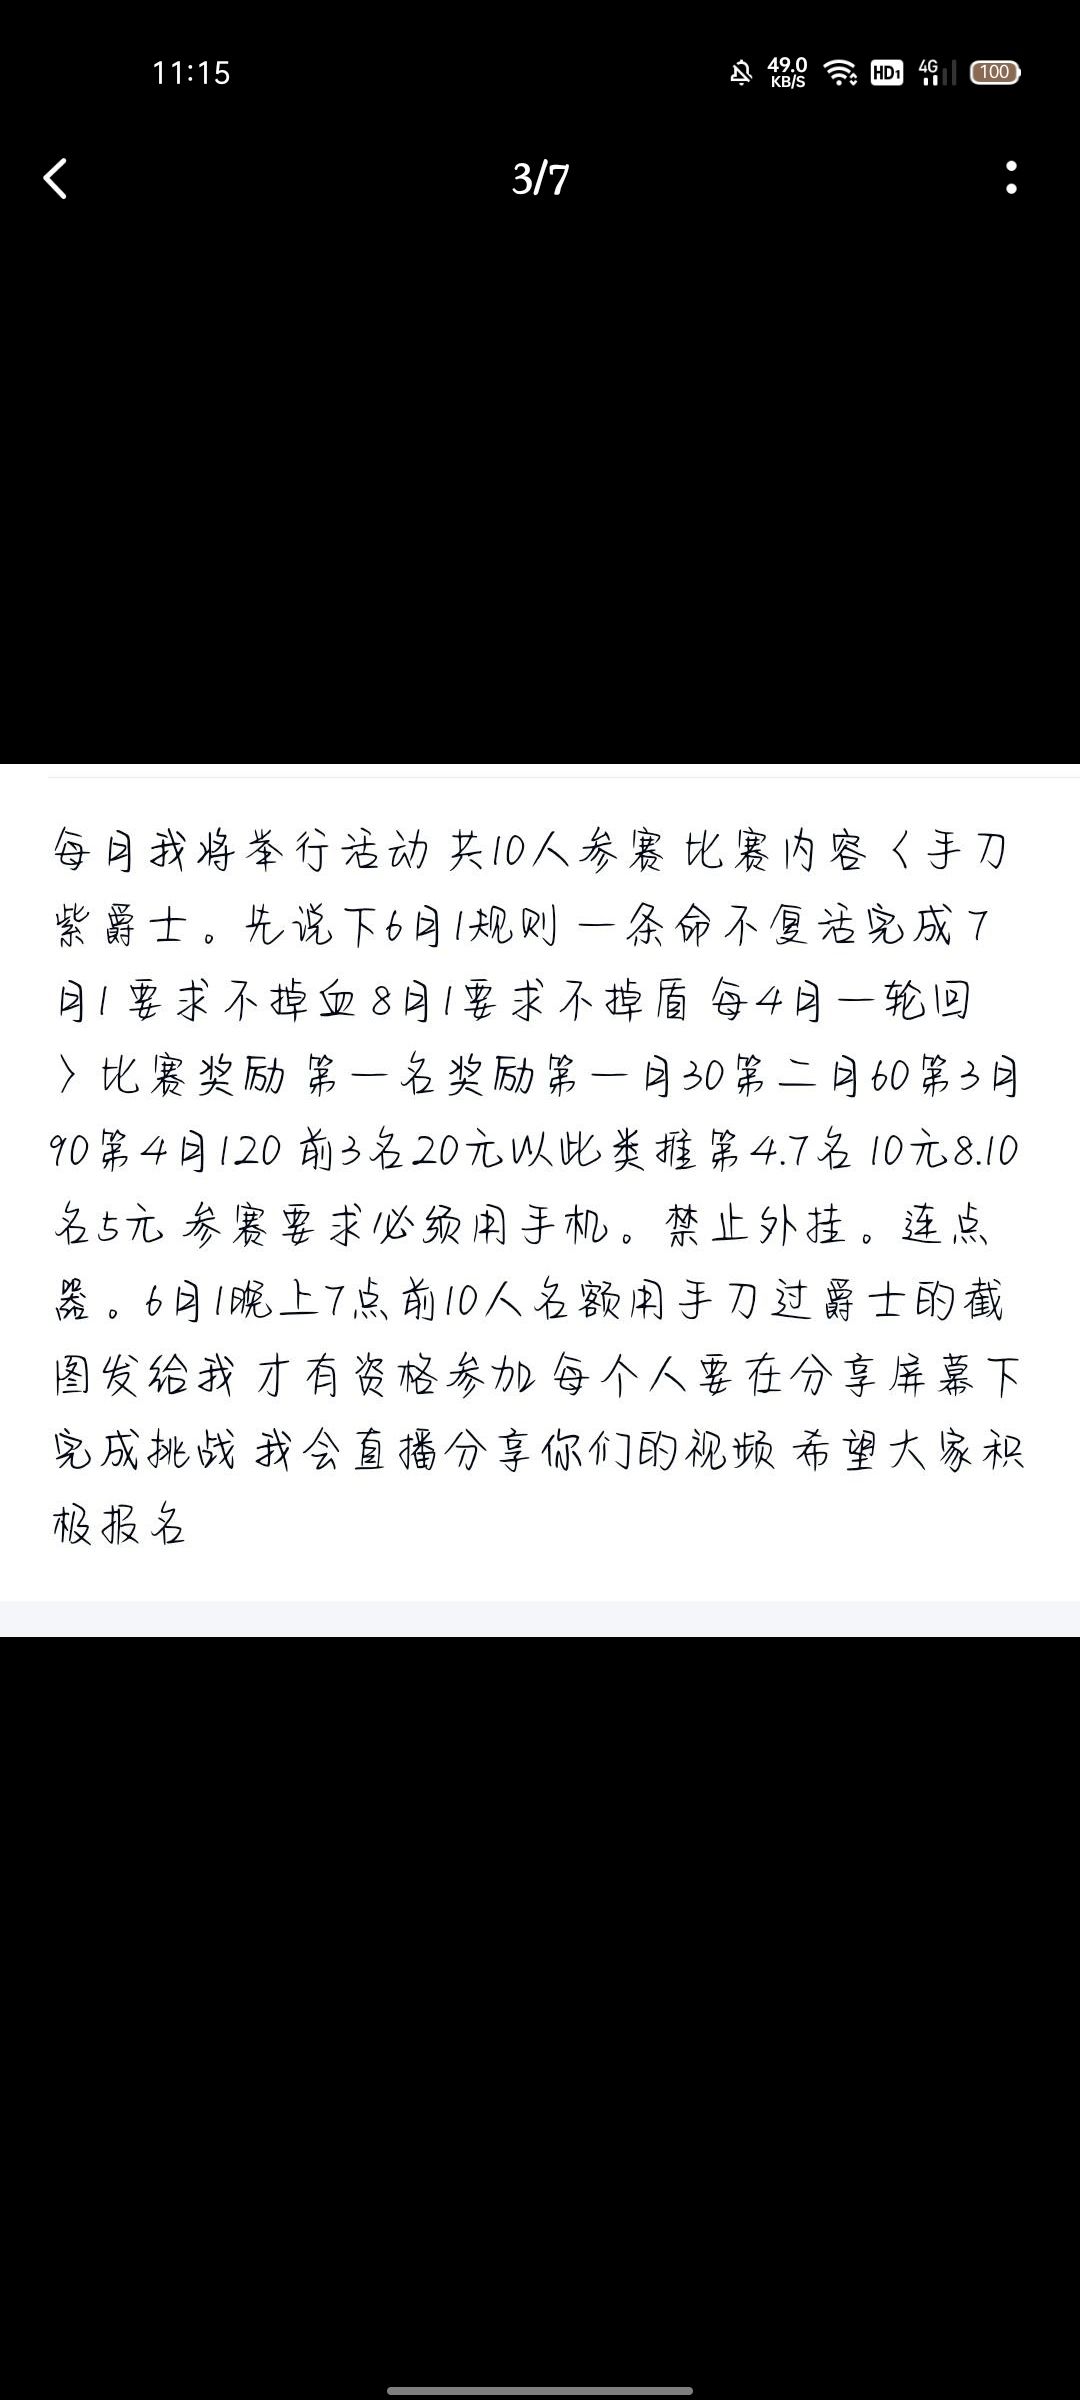 11:15
49.0
KB/S
HD1
4G
100
3/7
每月我将举行活动 共10人参赛 比赛内容〈手刀
紫爵士。先说下6月1规则 一条命不复活完成 7
月1 要求不掉血 8月1要求不掉盾 每4月一轮回
〉比赛奖励 第一名奖励第一月30第二月60第3月
90第4月120 前3名20元以此类推第4.7名 10元8.10
名5元 参赛要求必须用手机。禁止外挂。连点
器。6月1晚上7点前10人名额用手刀过爵士的截
图发给我 才有资格参加 每个人要在分享屏幕下
完成挑战 我会直播分享你们的视频 希望大家积
极报名